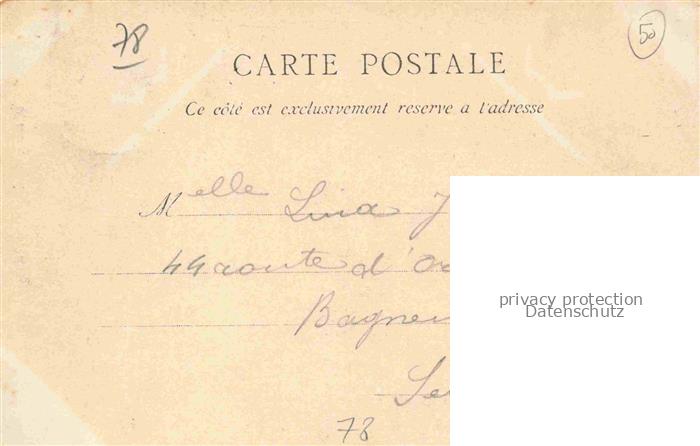 78
50
CARTE POSTALE
Ce côté est exclusivement reserve a l'adresse
Melle
44 route d'
privacy protection
Datenschutz
78